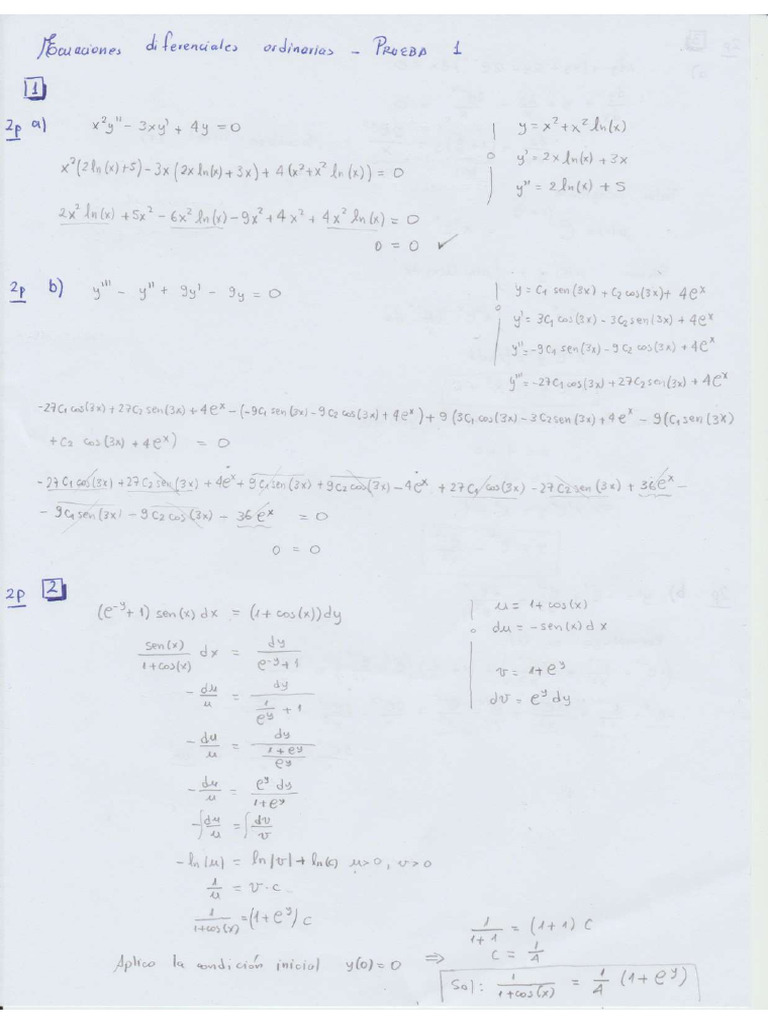 Ecuaciones diferenciales ordinarias - PRUEBA 1
1
2p a) x²y'' - 3xy' + 4y = 0
y = x² + x² ln(x)
y' = 2x ln(x) + 3x
y'' = 2 ln(x) + 5
x²(2 ln(x) + 5) - 3x(2x ln(x) + 3x) + 4(x² + x² ln(x)) = 0
2x² ln(x) + 5x² - 6x² ln(x) - 9x² + 4x² + 4x² ln(x) = 0
0 = 0 ✓
2p b) y''' - y'' + 9y' - 9y = 0
y = C₁ sen(3x) + C₂ cos(3x) + 4eˣ
y' = 3C₁ cos(3x) - 3C₂ sen(3x) + 4eˣ
y'' = -9C₁ sen(3x) - 9C₂ cos(3x) + 4eˣ
y''' = -27C₁ cos(3x) + 27C₂ sen(3x) + 4eˣ
-27C₁ cos(3x) + 27C₂ sen(3x) + 4eˣ - (-9C₁ sen(3x) - 9C₂ cos(3x) + 4eˣ) + 9(3C₁ cos(3x) - 3C₂ sen(3x) + 4eˣ - 9(C₁ sen(3x)
+ C₂ cos(3x) + 4eˣ) = 0
-27C₁ cos(3x) + 27C₂ sen(3x) + 4eˣ + 9C₁ sen(3x) + 9C₂ cos(3x) - 4eˣ + 27C₁ cos(3x) - 27C₂ sen(3x) + 36eˣ -
- 9C₁ sen(3x) - 9C₂ cos(3x) - 36eˣ = 0
0 = 0
2p 2
(e⁻ʸ + 1) sen(x) dx = (1 + cos(x)) dy
u = 1 + cos(x)
du = -sen(x) dx
v = 1 + eʸ
dv = eʸ dy
sen(x)/(1 + cos(x)) dx = dy/(e⁻ʸ + 1)
- du/u = dy/(1/eʸ + 1)
- du/u = dy/((1 + eʸ)/eʸ)
- du/u = eʸ dy/(1 + eʸ)
-∫ du/u = ∫ dv/v
-ln|u| = ln|v| + ln(c) u>0, v>0
1/u = v·c
1/(1 + cos(x)) = (1 + eʸ) C
Aplico la condición inicial y(0) = 0 ⇒ 1/(1 + 1) = (1 + 1) C
C = 1/4
Sol: 1/(1 + cos(x)) = 1/4 (1 + eʸ)